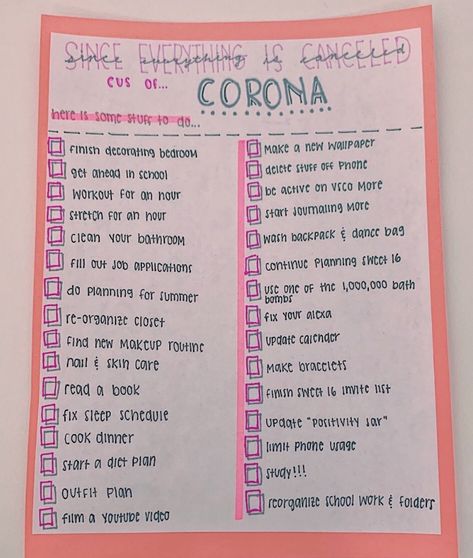 SINCE EVERYTHING IS CANCELED
since everything is canceled
cus of...
CORONA
here is some stuff to do...
finish decorating bedroom
get ahead in school
workout for an hour
stretch for an hour
clean your bathroom
fill out job applications
do planning for summer
re-organize closet
find new makeup routine
nail & skin care
read a book
fix sleep schedule
cook dinner
start a diet plan
outfit plan
film a youtube video
make a new wallpaper
delete stuff off phone
be active on vsco more
start journaling more
wash backpack & dance bag
continue planning sweet 16
use one of the 1,000,000 bath
bombs
fix your alexa
update calender
make bracelets
finish sweet 16 invite list
update "positivity jar"
limit phone usage
study!!!
reorganize school work & folders